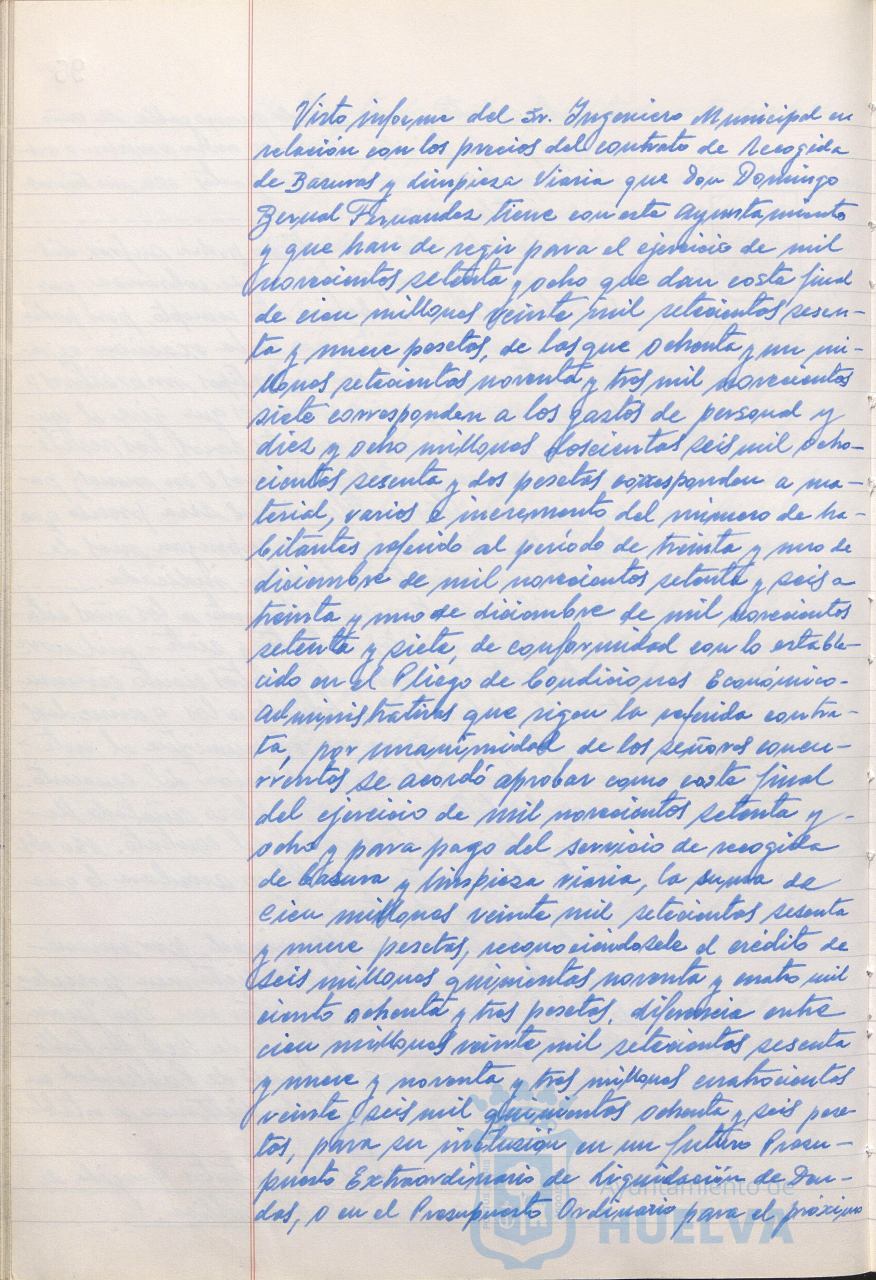 Visto informe del Sr. Ingeniero Municipal en
relación con los precios del contrato de Recogida
de Basuras y Limpieza Viaria que Don Domingo
Bernal Fernandez tiene con este Ayuntamiento
y que han de regir para el ejercicio de mil
novecientos setenta y ocho que dan costa final
de cien millones veinte mil setecientos sesen-
ta y nueve pesetas, de las que ochenta y un mi-
llones setecientos noventa y tres mil novecientos
siete corresponden a los gastos de personal y
diez y ocho millones doscientos seis mil ocho-
cientos sesenta y dos pesetas corresponden a ma-
terial, varios e incremento del número de ha-
bitantes referido al período de treinta y uno de
diciembre de mil novecientos setenta y seis a
treinta y uno de diciembre de mil novecientos
setenta y siete, de conformidad con lo estable-
cido en el Pliego de Condiciones Económico-
Administrativas que rigen la referida contra-
ta, por unanimidad de los señores concu-
rrentes se acordó aprobar como costa final
del ejercicio de mil novecientos setenta y
ocho y para pago del servicio de recogida
de basura y limpieza viaria, la suma de
cien millones veinte mil setecientos sesenta
y nueve pesetas, reconociéndosele el crédito de
seis millones quinientas noventa y cuatro mil
ciento ochenta y tres pesetas, diferencia entre
cien millones veinte mil setecientos sesenta
y nueve y noventa y tres millones cuatrocientos
veinte y seis mil quinientos ochenta y seis pese-
tas, para su inclusión en un futuro Presu-
puesto Extraordinario de Liquidación de Deu-
das, o en el Presupuesto Ordinario para el próximo
Ayuntamiento de
HUELVA